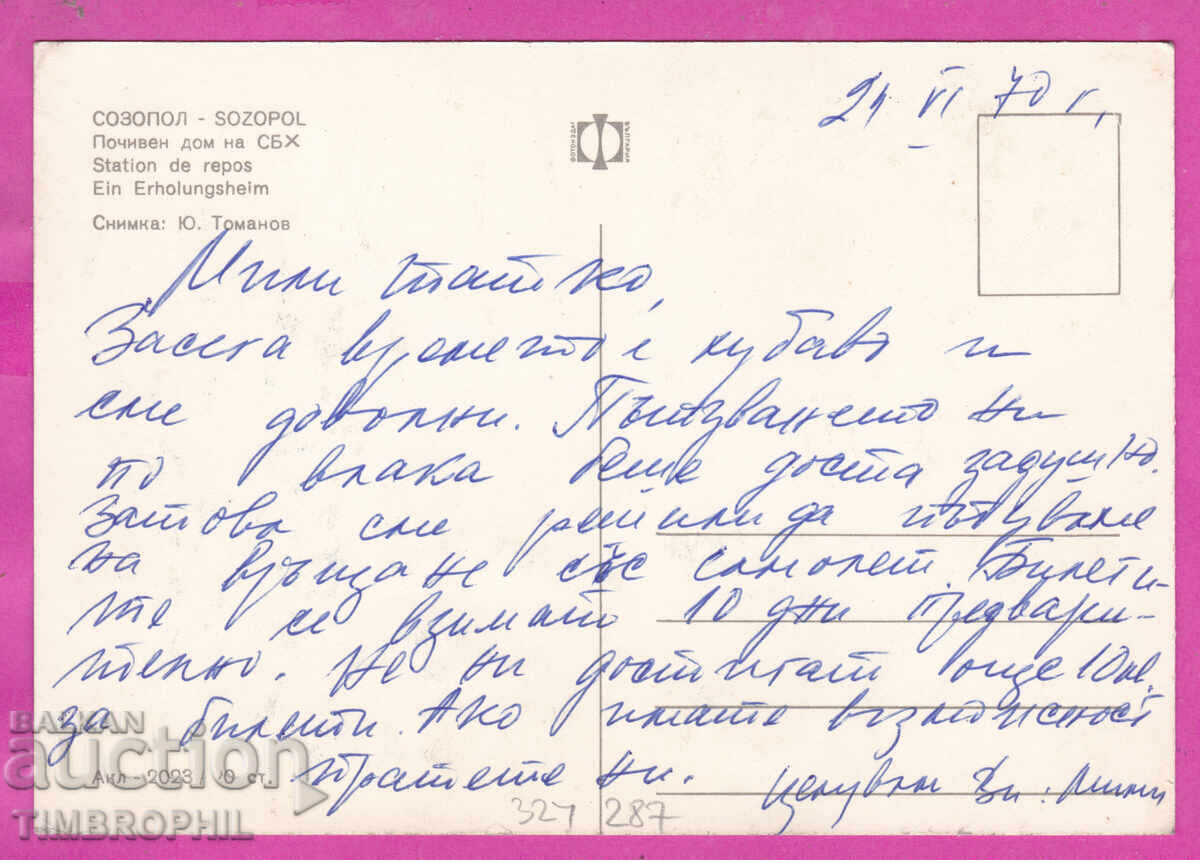 24 VI 70 г.
СОЗОПОЛ - SOZOPOL
Почивен дом на СБХ
Station de repos
Ein Erholungsheim
Снимка: Ю. Томанов
ФОТОИЗДАТ БЪЛГАРИЯ
Мили татко,
Засега времето е хубаво и
сме доволни. Пътуването ни
по влака беше доста задушно.
Затова сме решили да пътуваме
на връщане със самолет. Билети-
те се взимат 10 дни предвари-
телно. Не ни достигат още 10 лв.
за билети. Ако имате възможност
пратете ни.
Целувки
Акл - 2023 / 20 ст.
327 287
BALKAN
auction
TIMBROPHIL